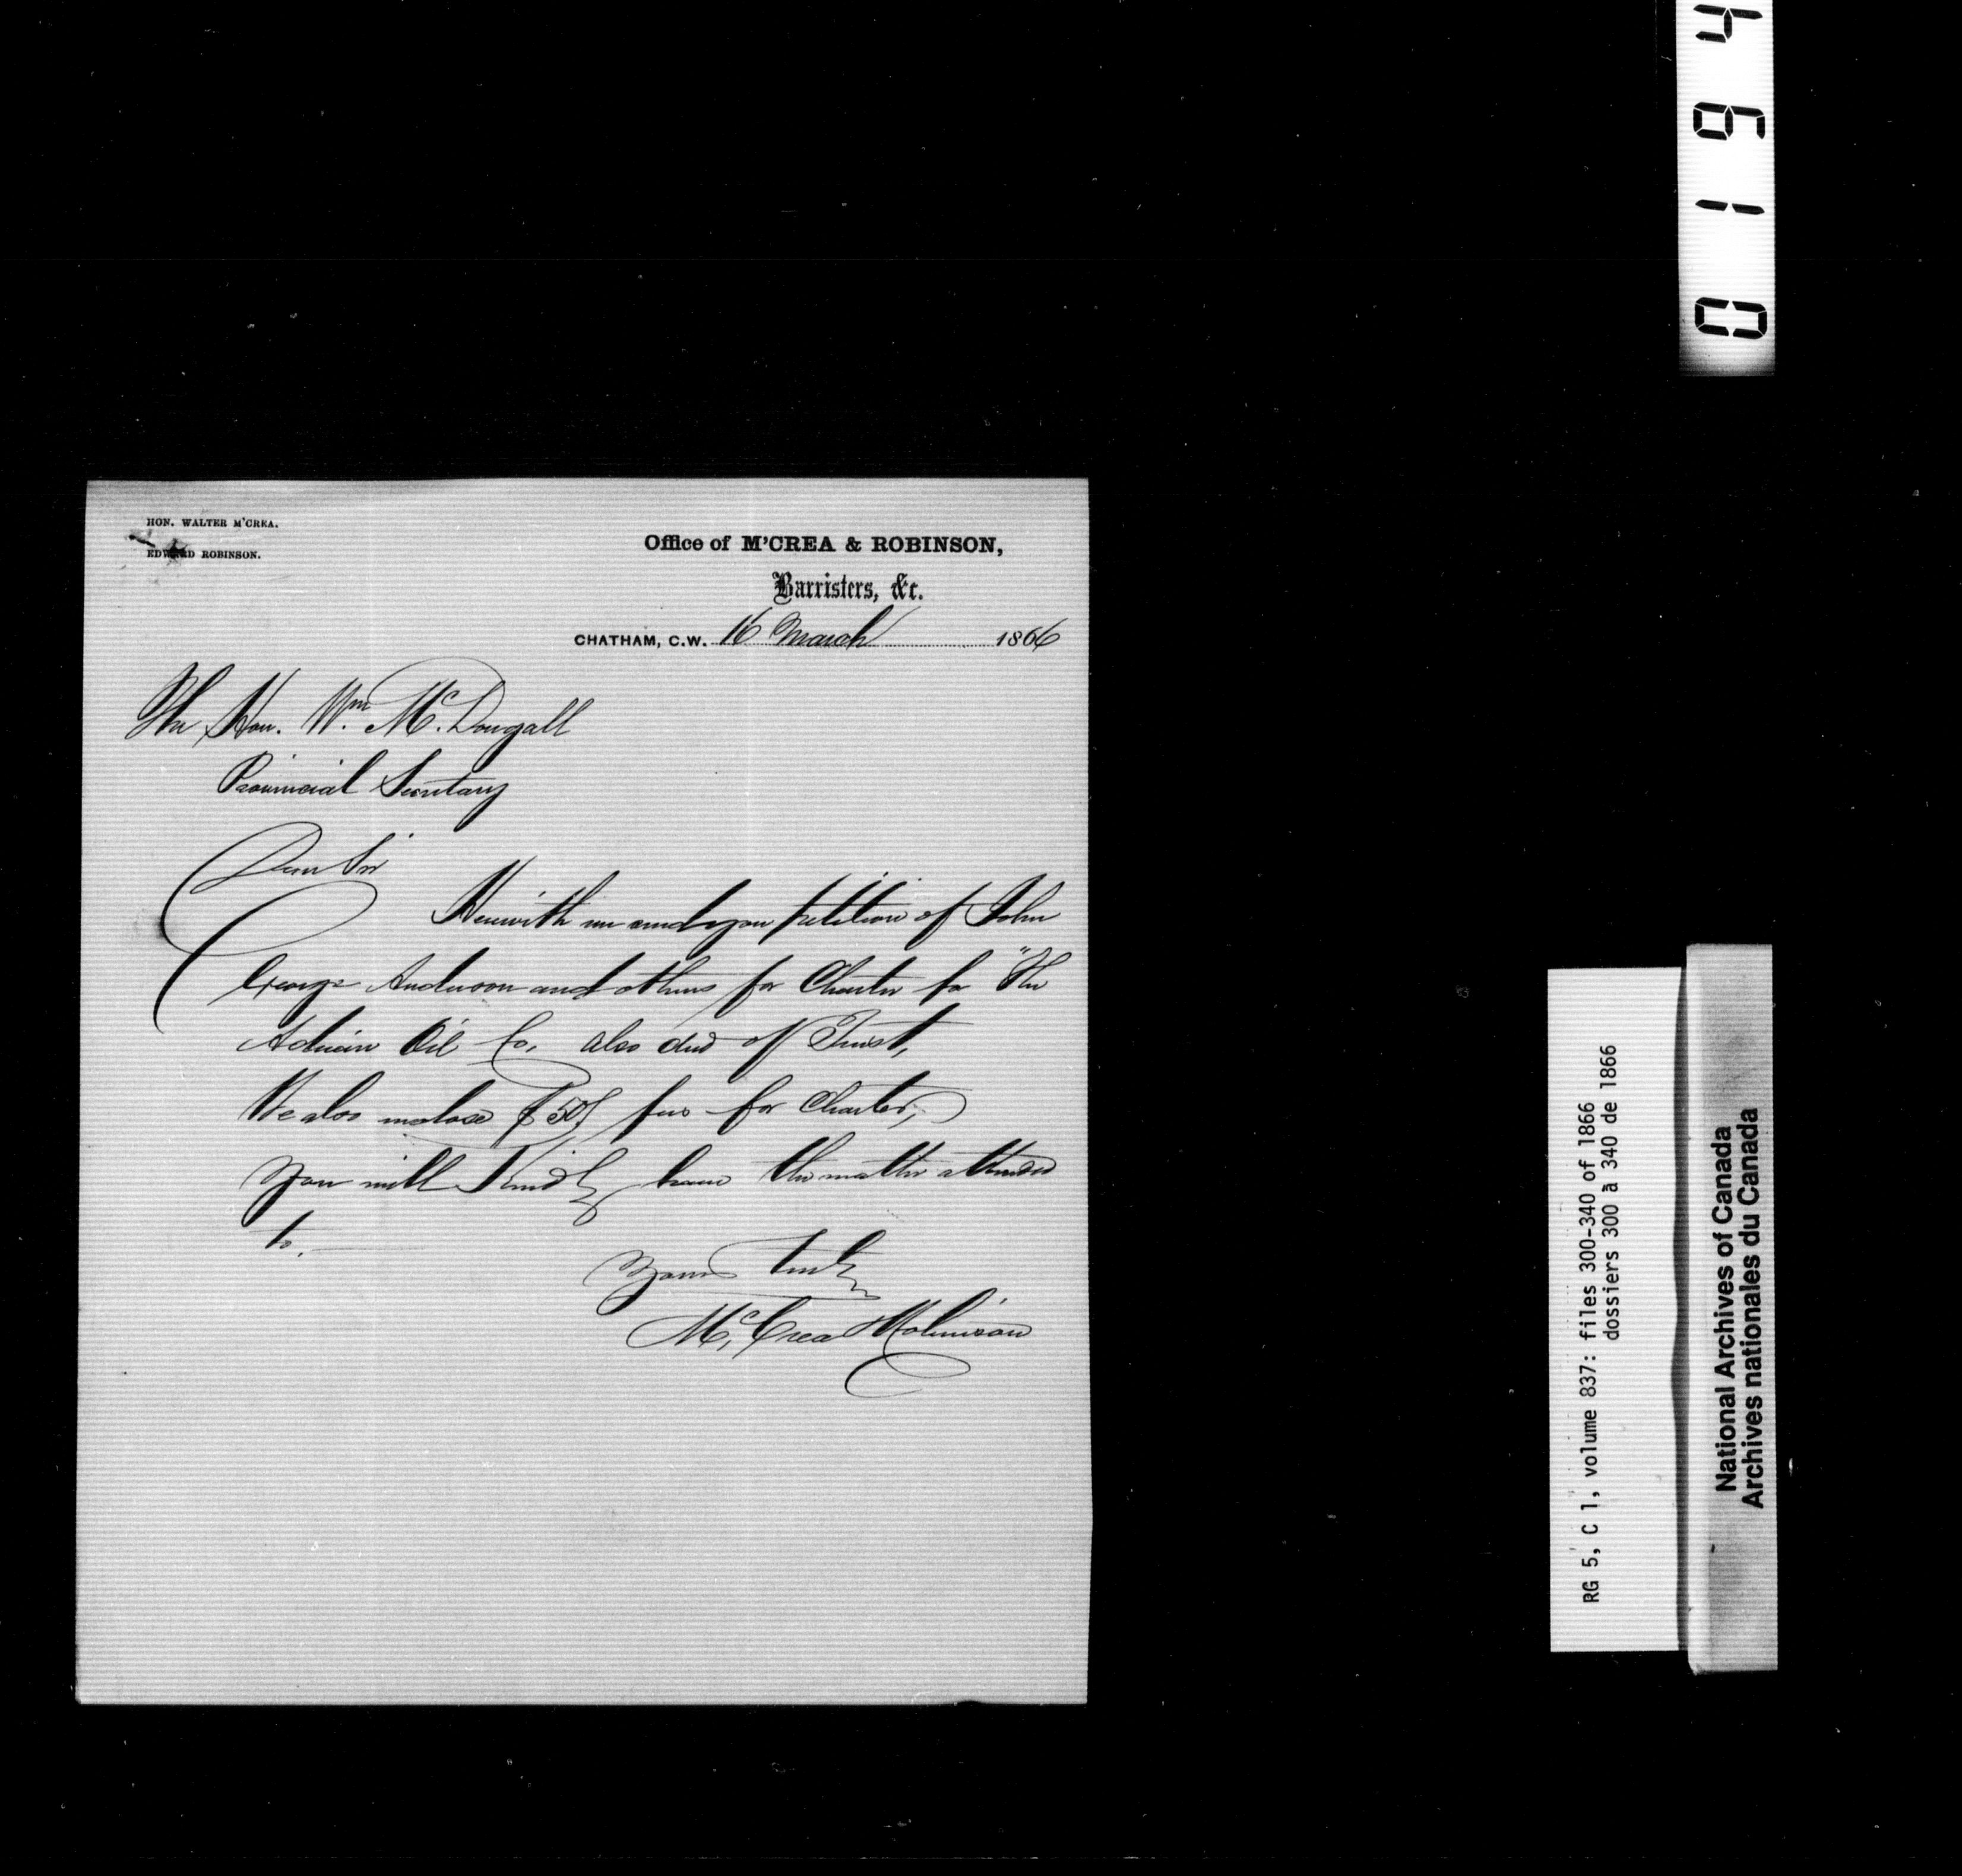 HON. WALTER M'CREA.
EDWARD ROBINSON.
Office of M'CREA & ROBINSON,
Barristers, &c.
CHATHAM, C.W. 16 March 1866
The Hon. Wm. McDougall
Provincial Secretary
Dear Sir
Herewith we send you petition of John
George Anderson and others for Charter for "The
Oil Co. also deed of Trust,
We also enclose $50 fees for Charter,
You will Kindly have the matter attended
to.
Yours truly
McCrea & Robinson
0164
RG 5, C 1, volume 837: files 300-340 of 1866
dossiers 300 à 340 de 1866
National Archives of Canada
Archives nationales du Canada